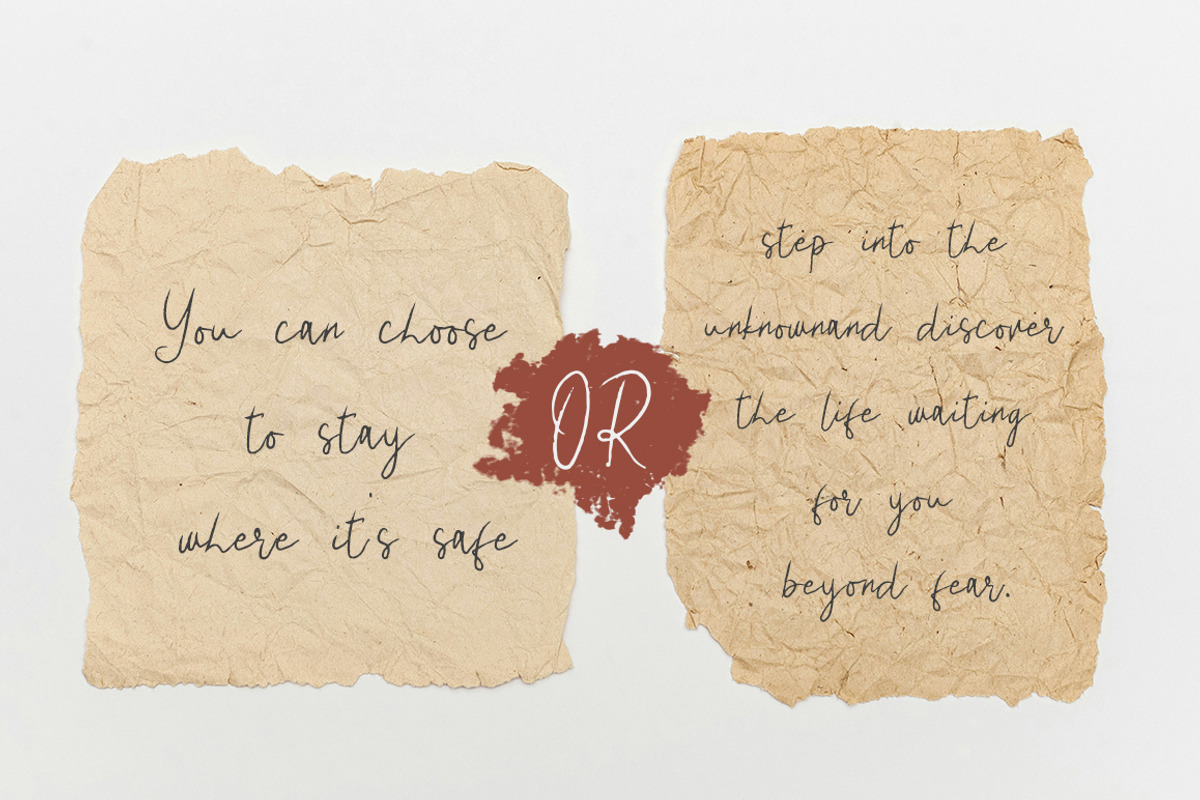 You can choose
to stay
where it's safe
OR
step into the
unknownand discover
the life waiting
for you
beyond fear.